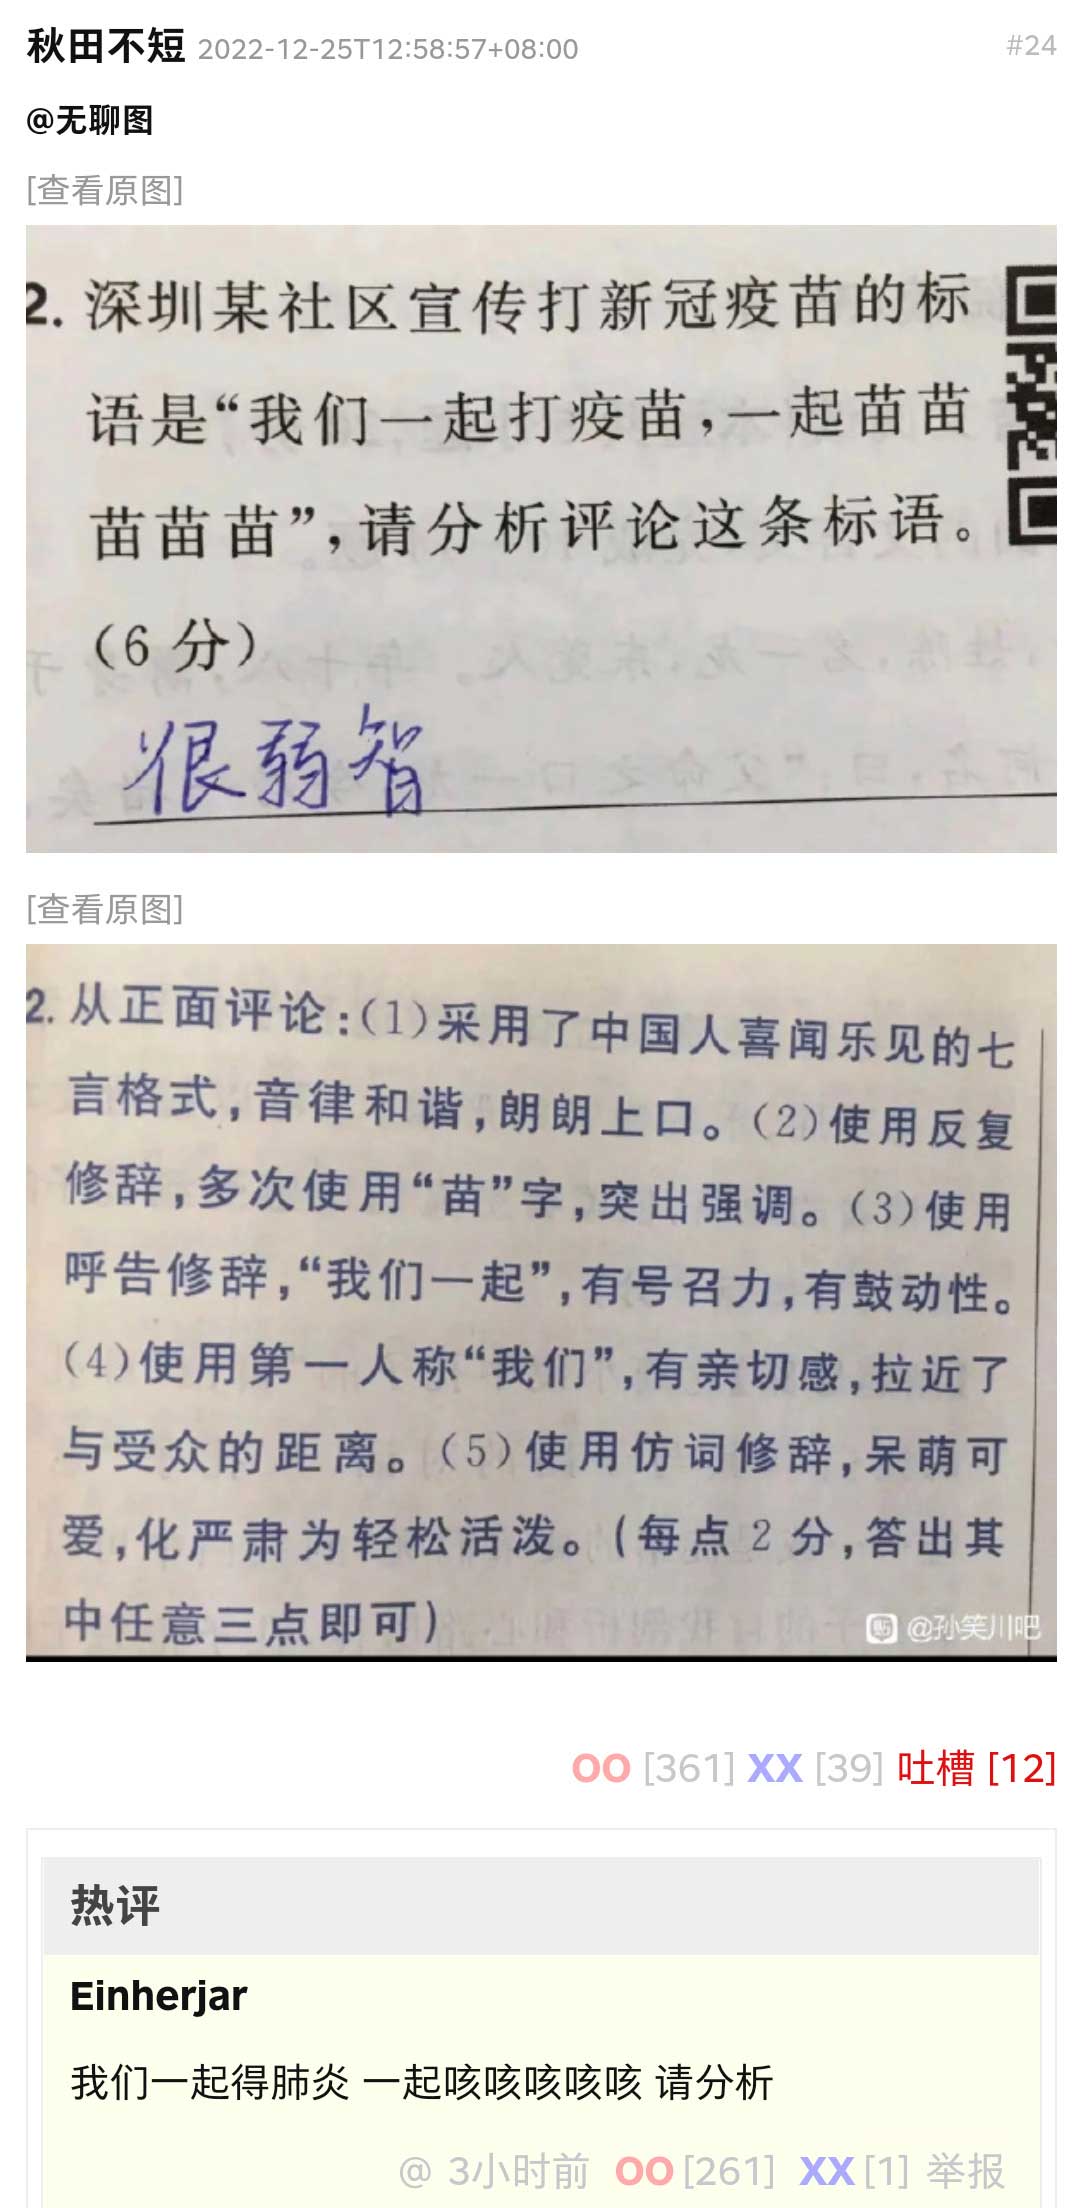 秋田不短 2022-12-25T12:58:57+08:00 #24
@无聊图
[查看原图]
2. 深圳某社区宣传打新冠疫苗的标
语是“我们一起打疫苗，一起苗苗
苗苗苗”，请分析评论这条标语。
（6 分）
很弱智
[查看原图]
2. 从正面评论：（1）采用了中国人喜闻乐见的七
言格式，音律和谐，朗朗上口。（2）使用反复
修辞，多次使用“苗”字，突出强调。（3）使用
呼告修辞，“我们一起”，有号召力，有鼓动性。
（4）使用第一人称“我们”，有亲切感，拉近了
与受众的距离。（5）使用仿词修辞，呆萌可
爱，化严肃为轻松活泼。（每点 2 分，答出其
中任意三点即可）
贴 @孙笑川吧
OO [361] XX [39] 吐槽 [12]
热评
Einherjar
我们一起得肺炎 一起咳咳咳咳咳 请分析
@ 3小时前 OO [261] XX [1] 举报